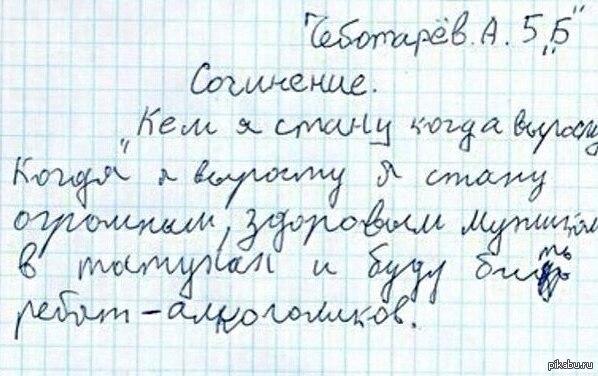 Чеботарёв. А. 5 „Б"
Сочинение.
„Кем я стану когда вырасту
Когдя" я вырасту я стану
огромным, здоровым мужиком
в татухах и буду бить
ребят-алкоголиков.
pikabu.ru